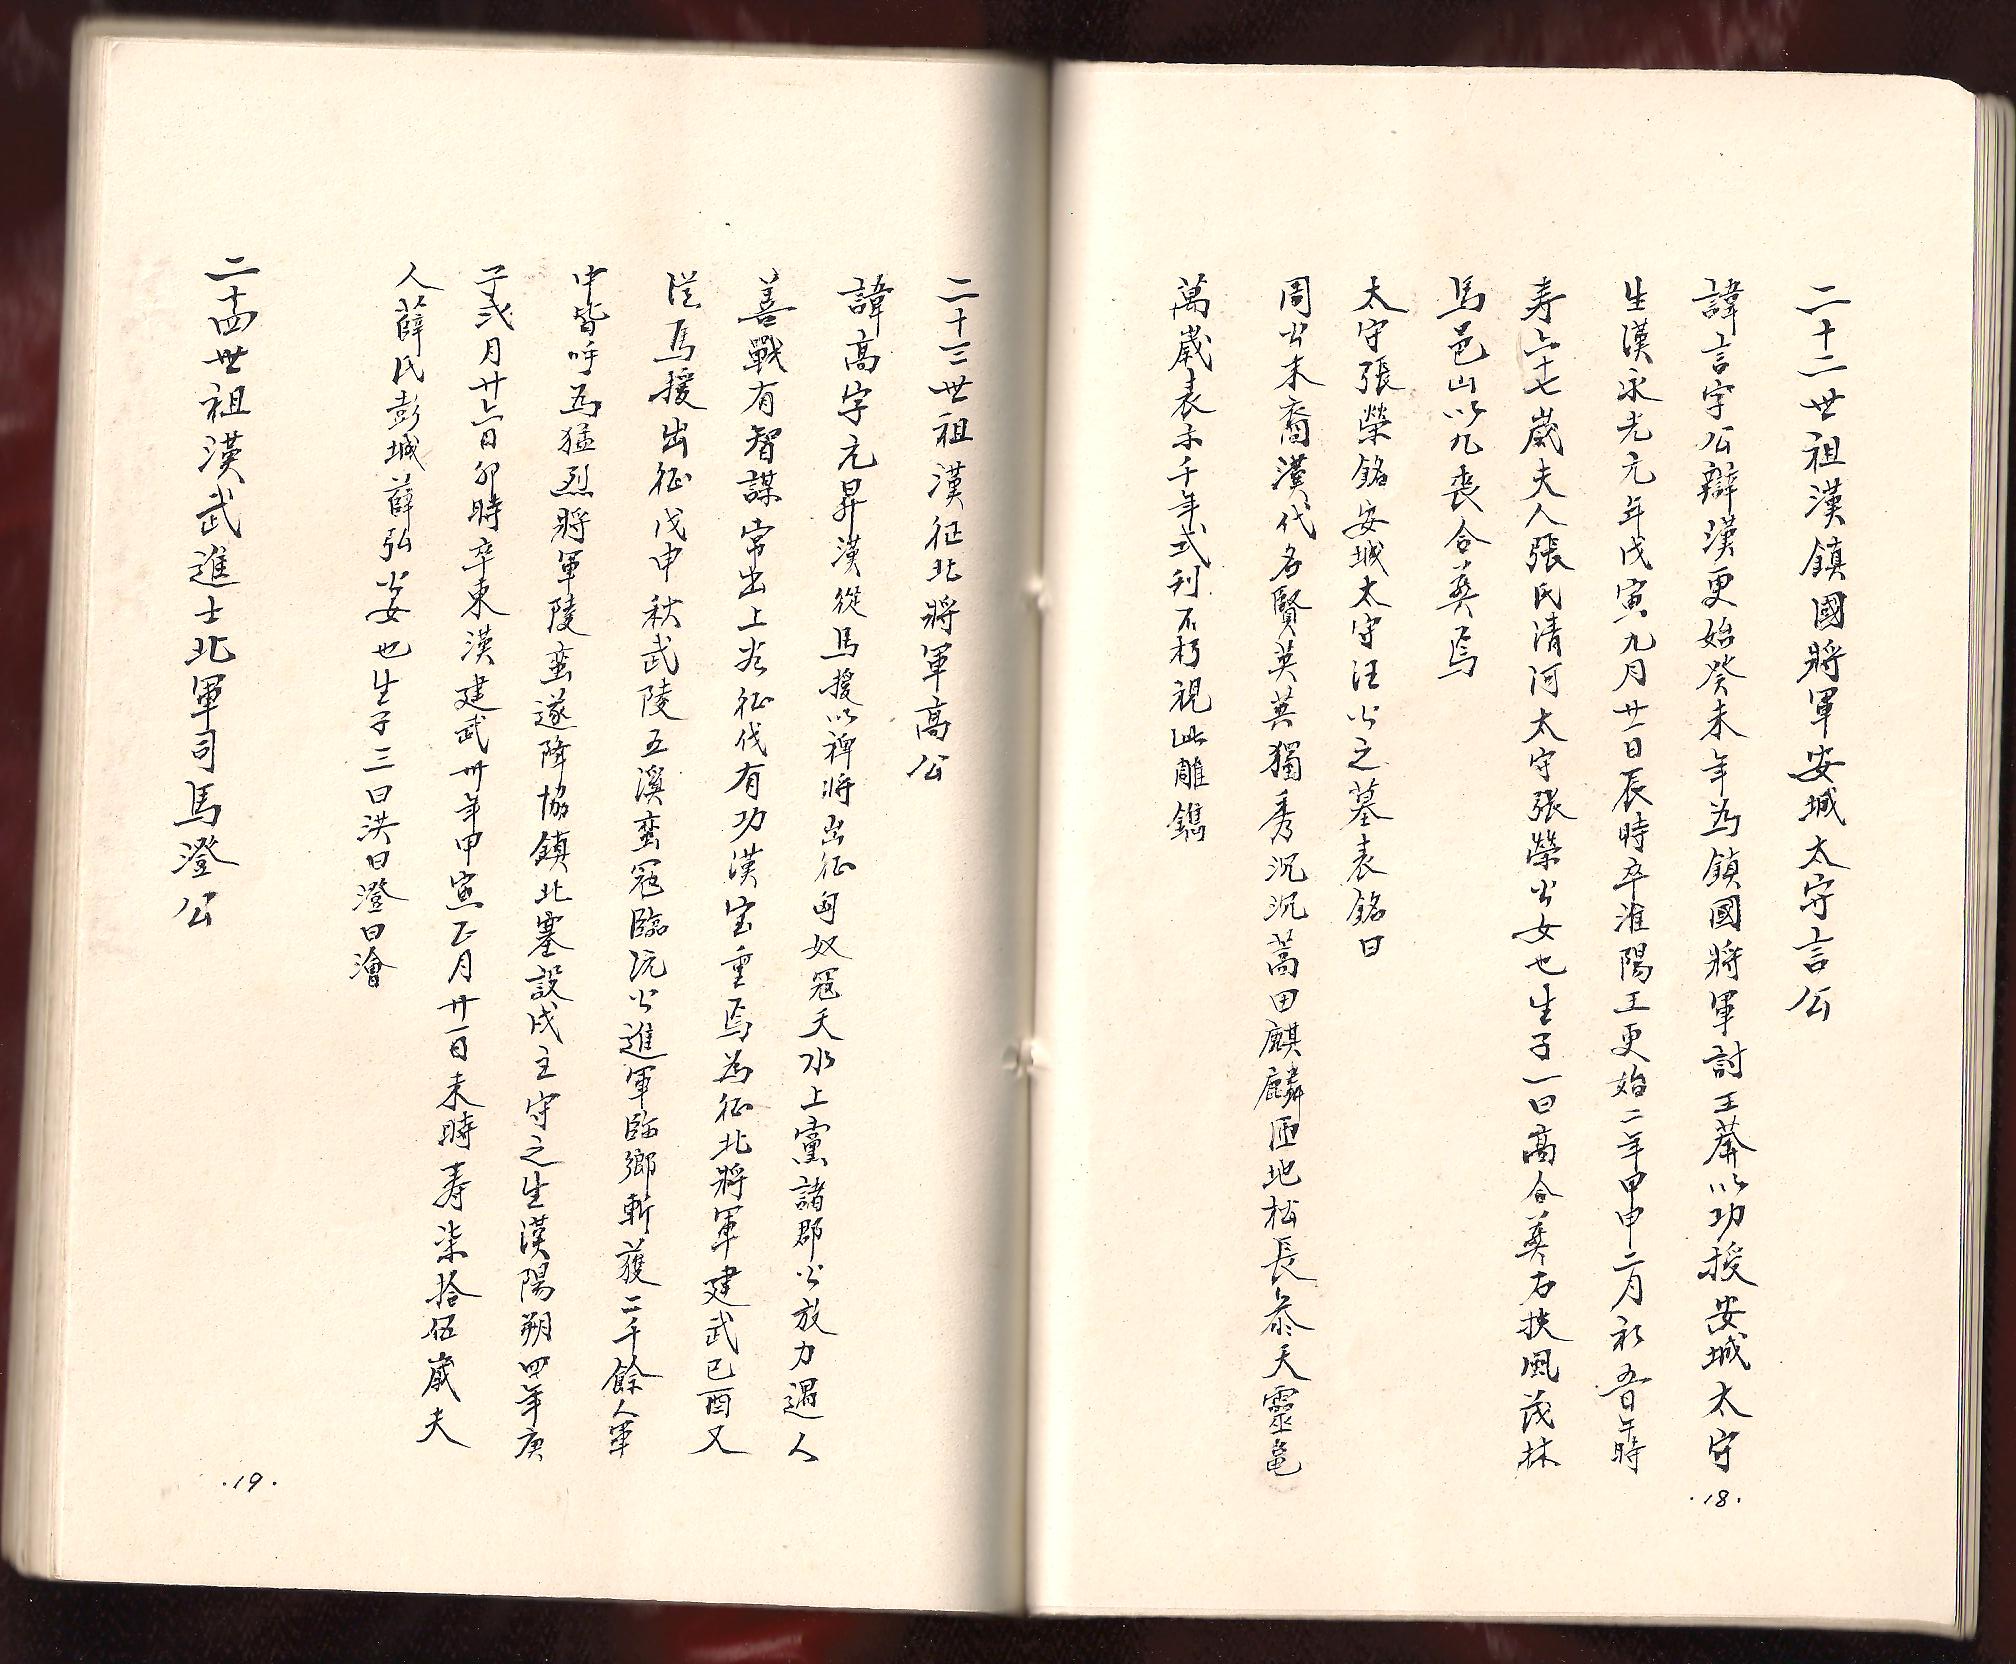 二十二世祖漢鎮國將軍安城太守言公
諱言字公辯漢更始癸未年为鎮國將軍討王莽以功授安城太守
生漢永光元年戊寅九月廿一日辰時卒淮陽王更始二年甲申二月初五日午時
寿六十七歲夫人張氏清河太守張榮公女也生子一曰高合葬右扶風茂林
馬邑山以九丧合葬焉
太守張榮銘安城太守汪公之墓表銘曰
周公末裔漢代名賢英英獨秀沉沉蒿田麒麟匝地松長参天靈亀
萬歲表示千年式利不朽視此雕鐫
·18·
二十三世祖漢征北將軍高公
諱高字元昇漢從馬援以裨將出征匈奴冦天水上黨諸郡公放力過人
善戰有智謀常出上谷征伐有功漢室重焉為征北將軍建武己酉又
従馬援出征戊申秋武陵五溪蛮冦臨沅公進軍臨鄉斬獲二千餘人軍
中皆呼為猛烈將軍陵蛮遂降協鎮北塞設戍主守之生漢陽朔四年庚
子弍月廿六日卯時卒東漢建武卅年甲寅正月廿一日未時寿柒拾伍歲夫
人薛氏彭城薛弘公姜也生子三曰洪曰澄曰澮
二十四世祖漢武進士北軍司馬澄公
·19·